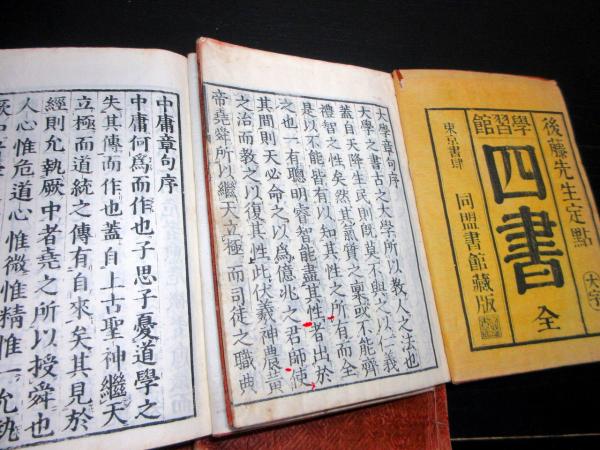 後藤先生定點
學習館
四書
全
大字
東京書肆
同盟書館藏版
大學章句序
大學之書古之大學所以教人之法也
蓋自天降生民則既莫不與之以仁義
禮智之性矣然其氣質之稟或不能齊
是以不能皆有以知其性之所有而全
之也一有聰明睿智能盡其性者出於
其間則天必命之以爲億兆之君師使
之治而教之以復其性此伏羲神農黃
帝堯舜所以繼天立極而司徒之職典
中庸章句序
中庸何爲而作也子思子憂道學之
失其傳而作也蓋自上古聖神繼天
立極而道統之傳有自來矣其見於
經則允執厥中者堯之所以授舜也
人心惟危道心惟微惟精惟一允執